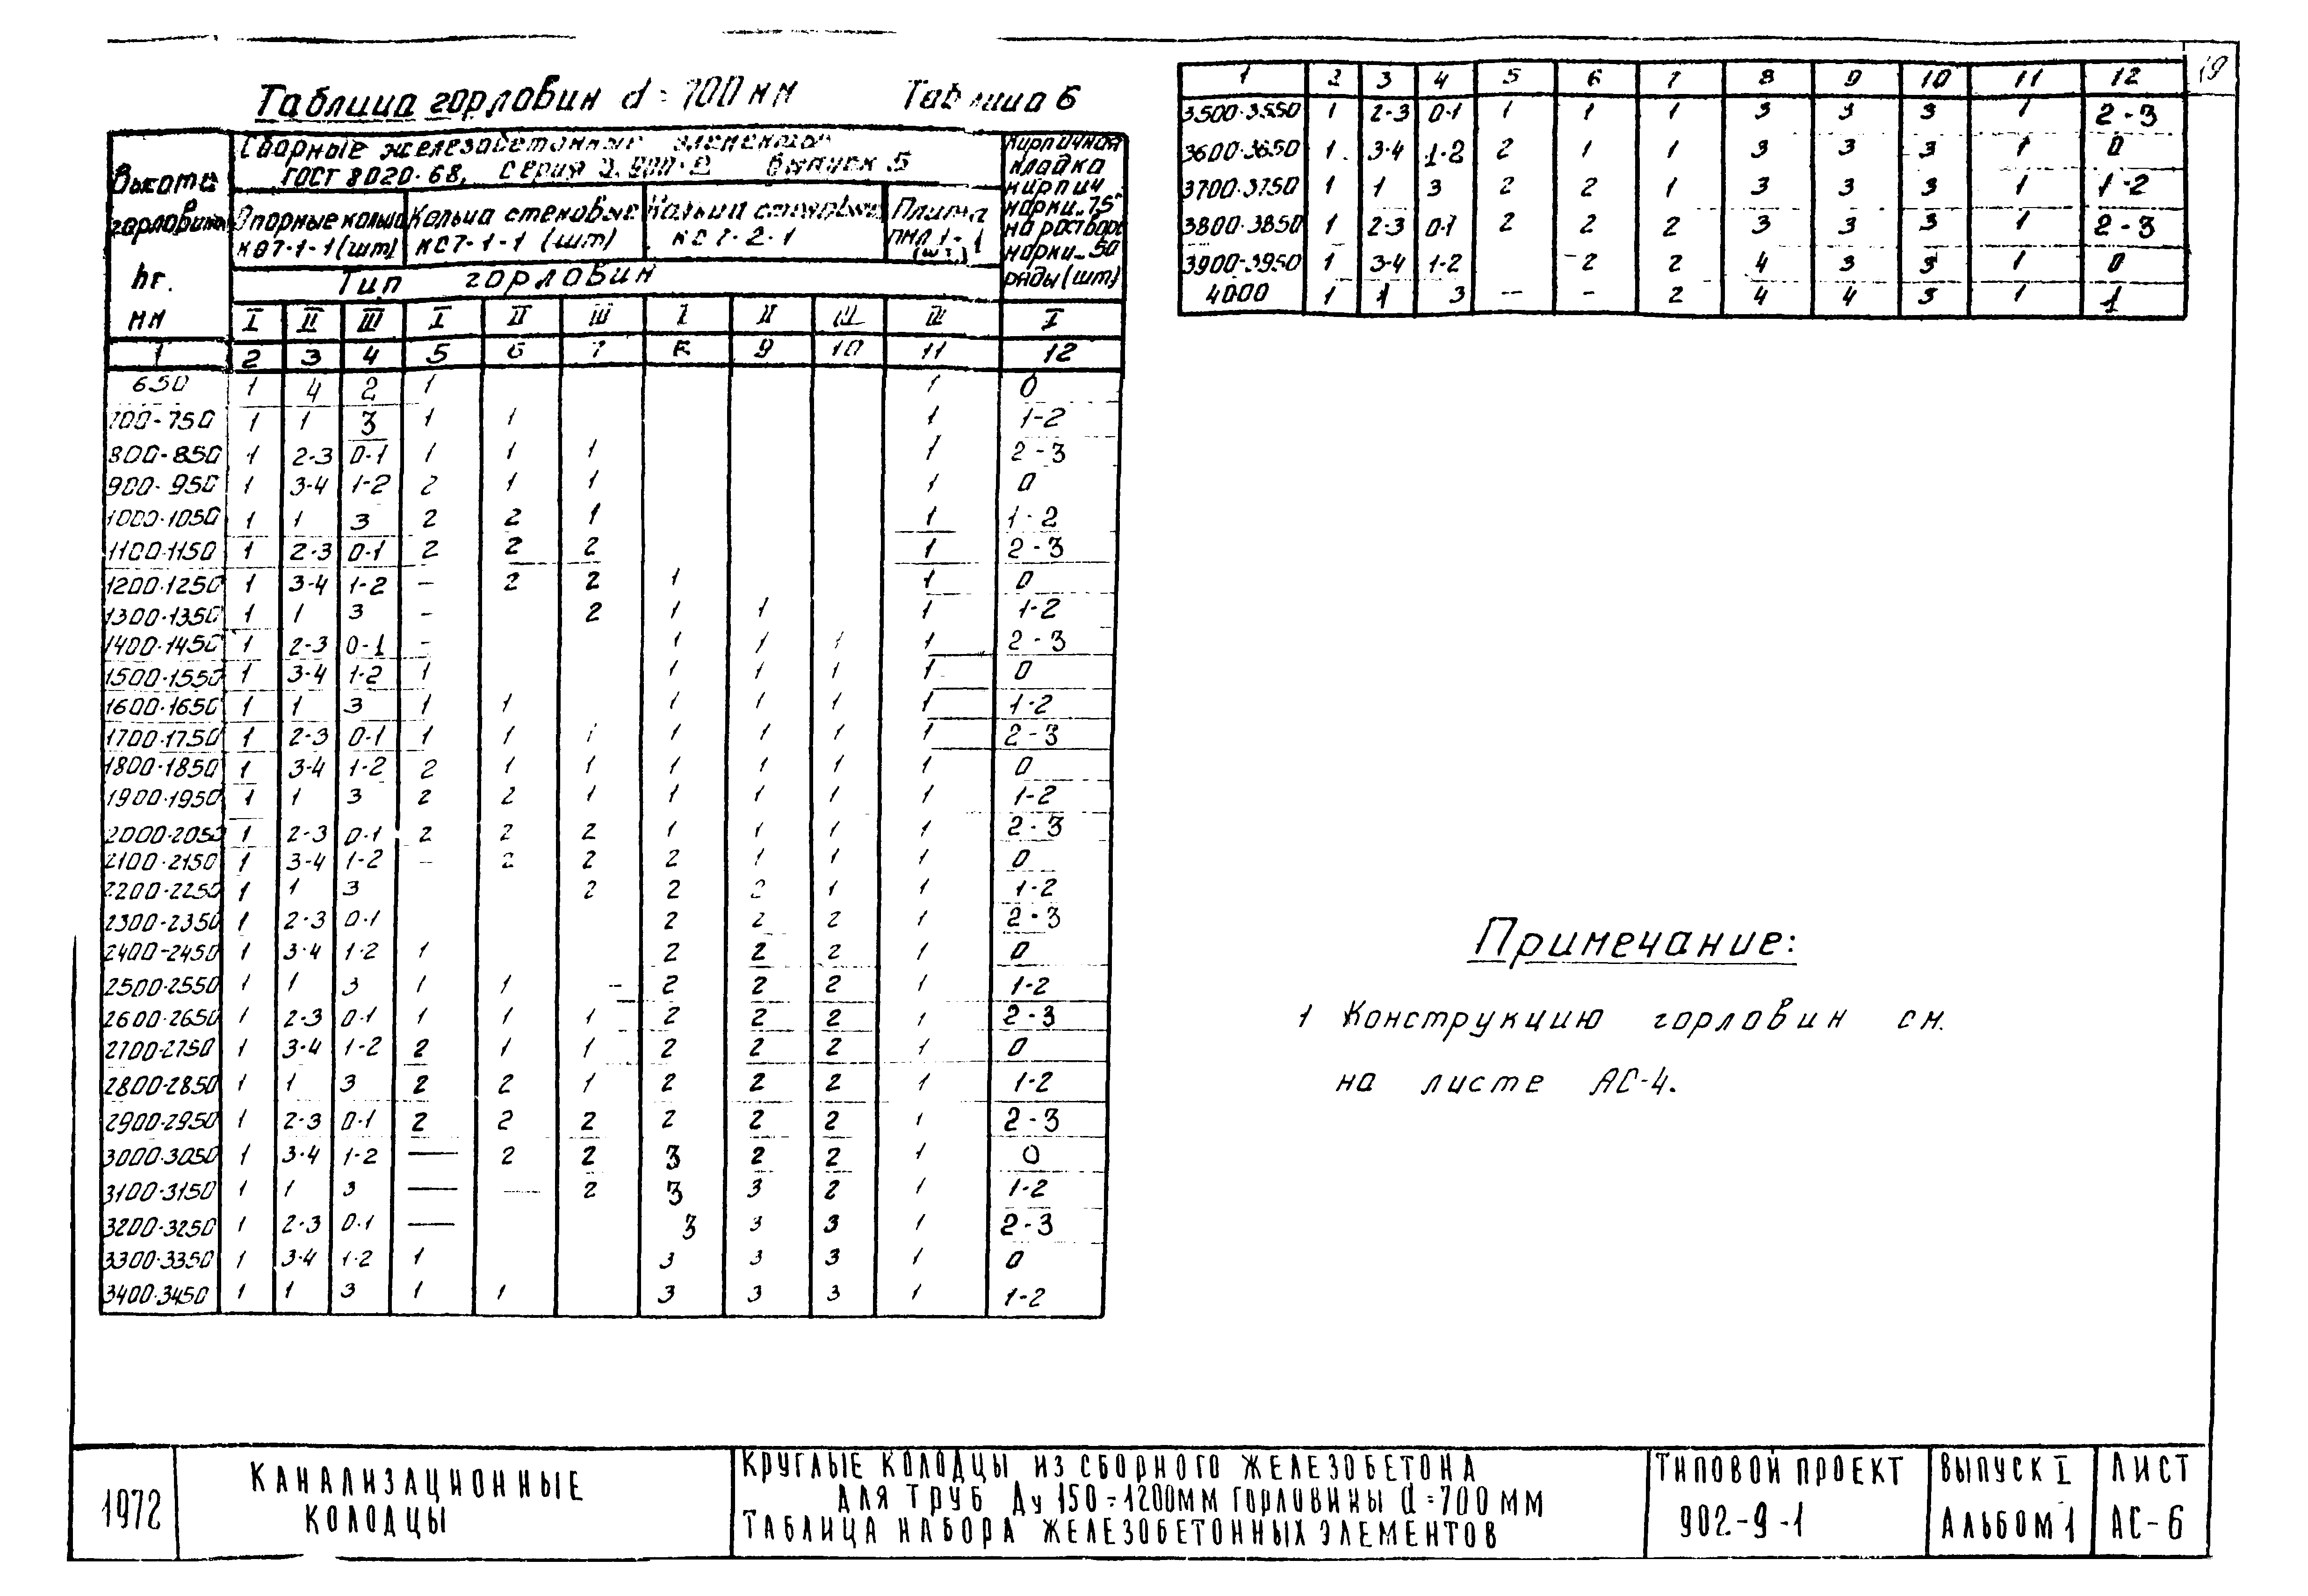 19
Таблица горловин d = 700 мм Таблица 6
Сборные железобетонные элементы
ГОСТ 8020-68, серия 3.900-2 выпуск 5
Высота горловины hг. мм
Опорные кольца КО7-1-1 (шт)
Кольца стеновые КС7-1-1 (шт)
Кольца стеновые КС7-2-1
Плита ПНЛ 1-1 (шт.)
Кирпичная кладка кирпич марки-75 на растворе марки-50 ряды (шт)
Тип горловин
I II III I II III I II III III I
1 2 3 4 5 6 7 8 9 10 11 12
650 1 4 2 1 1 0
700-750 1 1 3 1 1 1 1-2
800-850 1 2-3 0-1 1 1 1 1 2-3
900-950 1 3-4 1-2 2 1 1 1 0
1000-1050 1 1 3 2 2 1 1 1-2
1100-1150 1 2-3 0-1 2 2 2 1 2-3
1200-1250 1 3-4 1-2 - 2 2 1 1 0
1300-1350 1 1 3 - 2 1 1 1 1-2
1400-1450 1 2-3 0-1 - 1 1 1 1 2-3
1500-1550 1 3-4 1-2 1 1 1 1 1 0
1600-1650 1 1 3 1 1 1 1 1 1 1-2
1700-1750 1 2-3 0-1 1 1 1 1 1 1 1 2-3
1800-1850 1 3-4 1-2 2 1 1 1 1 1 1 0
1900-1950 1 1 3 2 2 1 1 1 1 1 1-2
2000-2050 1 2-3 0-1 2 2 2 1 1 1 1 2-3
2100-2150 1 3-4 1-2 - 2 2 2 1 1 1 0
2200-2250 1 1 3 2 2 2 1 1 1-2
2300-2350 1 2-3 0-1 2 2 2 1 2-3
2400-2450 1 3-4 1-2 1 2 2 2 1 0
2500-2550 1 1 3 1 1 - 2 2 2 1 1-2
2600-2650 1 2-3 0-1 1 1 1 2 2 2 1 2-3
2700-2750 1 3-4 1-2 2 1 1 2 2 2 1 0
2800-2850 1 1 3 2 2 1 2 2 2 1 1-2
2900-2950 1 2-3 0-1 2 2 2 2 2 2 1 2-3
3000-3050 1 3-4 1-2 — 2 2 3 2 2 1 0
3100-3150 1 1 3 — — 2 3 3 2 1 1-2
3200-3250 1 2-3 0-1 — 3 3 3 1 2-3
3300-3350 1 3-4 1-2 1 3 3 3 1 0
3400-3450 1 1 3 1 1 3 3 3 1 1-2
1 2 3 4 5 6 7 8 9 10 11 12
3500-3550 1 2-3 0-1 1 1 1 3 3 3 1 2-3
3600-3650 1 3-4 1-2 2 1 1 3 3 3 1 0
3700-3750 1 1 3 2 2 1 3 3 3 1 1-2
3800-3850 1 2-3 0-1 2 2 2 3 3 3 1 2-3
3900-3950 1 3-4 1-2 - 2 2 4 3 3 1 0
4000 1 1 3 - - 2 4 4 3 1 1
Примечание:
1 Конструкцию горловин см.
на листе АС-4.
1972
КАНАЛИЗАЦИОННЫЕ
КОЛОДЦЫ
КРУГЛЫЕ КОЛОДЦЫ ИЗ СБОРНОГО ЖЕЛЕЗОБЕТОНА
ДЛЯ ТРУБ Ду 150÷1200ММ ГОРЛОВИНЫ d=700 ММ
ТАБЛИЦА НАБОРА ЖЕЛЕЗОБЕТОННЫХ ЭЛЕМЕНТОВ
ТИПОВОЙ ПРОЕКТ
902-9-1
ВЫПУСК I
АЛЬБОМ 1
ЛИСТ
АС-6